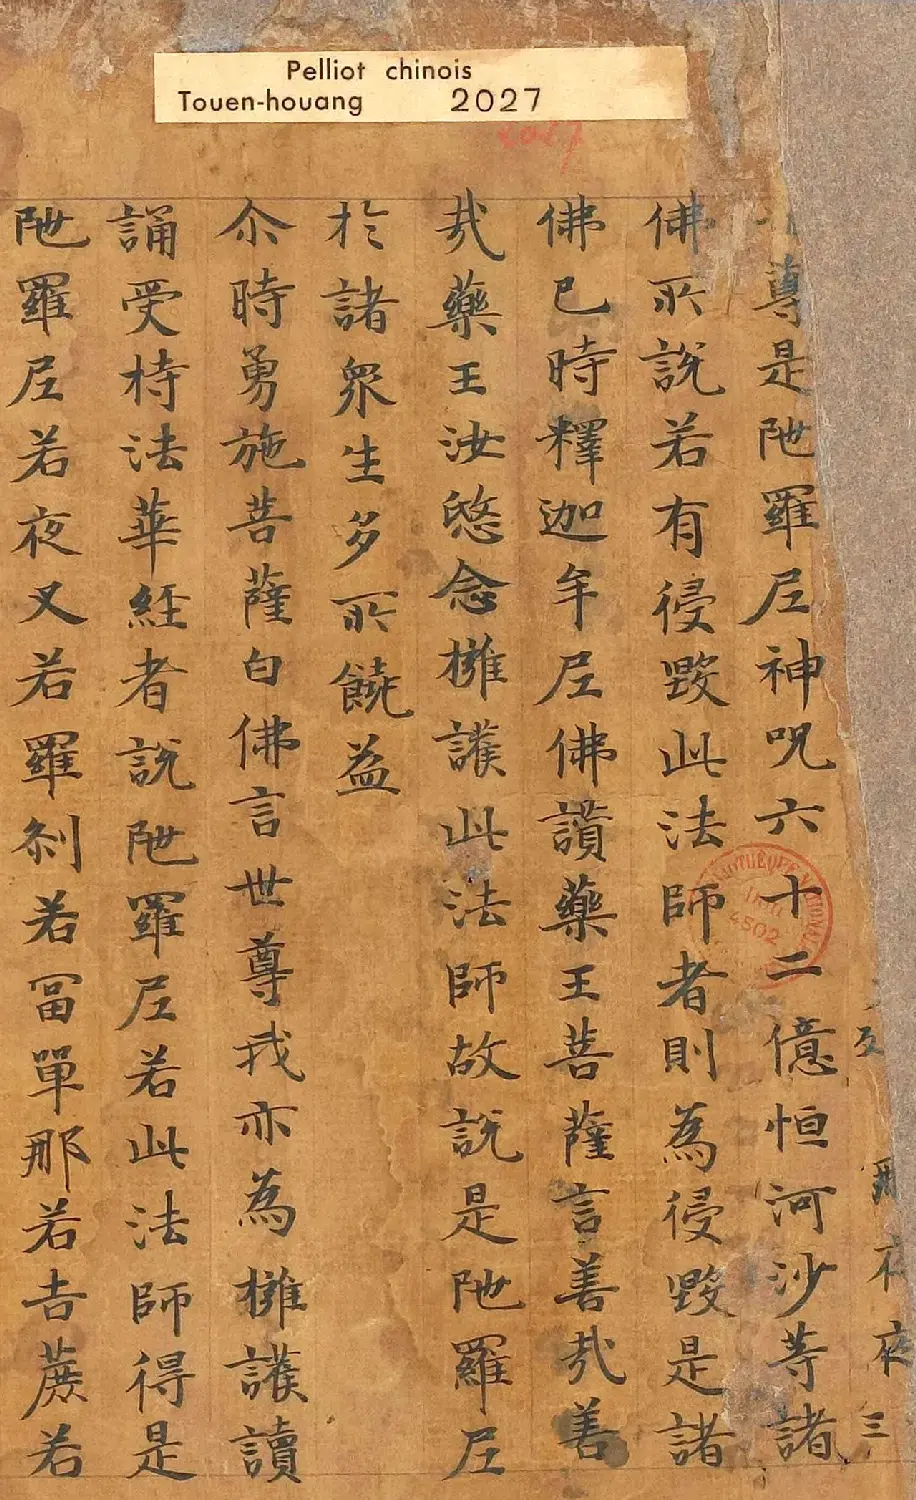 Pelliot chinois
Touen-houang 2027
2027
三
尊是陁羅尼神呪六十二億恒河沙等諸
佛所說若有侵毀此法師者則為侵毀是諸
佛已時釋迦牟尼佛讚藥王菩薩言善哉善
哉藥王汝愍念擁護此法師故說是陁羅尼
於諸衆生多所饒益
尒時勇施菩薩白佛言世尊我亦為擁護讀
誦受持法華經者說陁羅尼若此法師得是
陁羅尼若夜叉若羅刹若冨單那若吉蔗若
4502